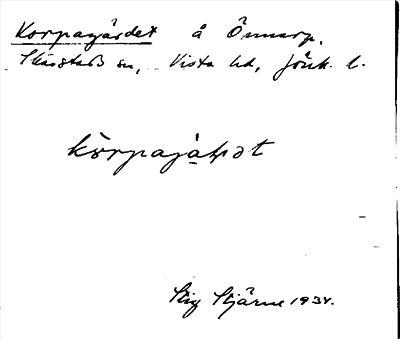 Korpagärdet å Önnarp,
Skärstads sn, Vista hd, Jönk. l.
kòrpajàḷ̣ət
Stig Stjärne 1934.